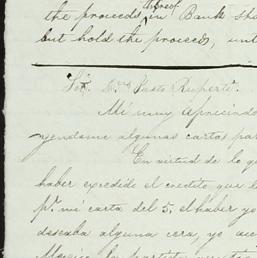 the proceeds thereof in Bank sho
but hold the proceeds, unt
Sor. Dn. Justo Ruperti.
Mi muy apreciado
algunas cartas par
En virtud de lo qu
haber excedido el credito que l
pr. mi carta del 5. el haber yo
deseaba alguna cera, yo